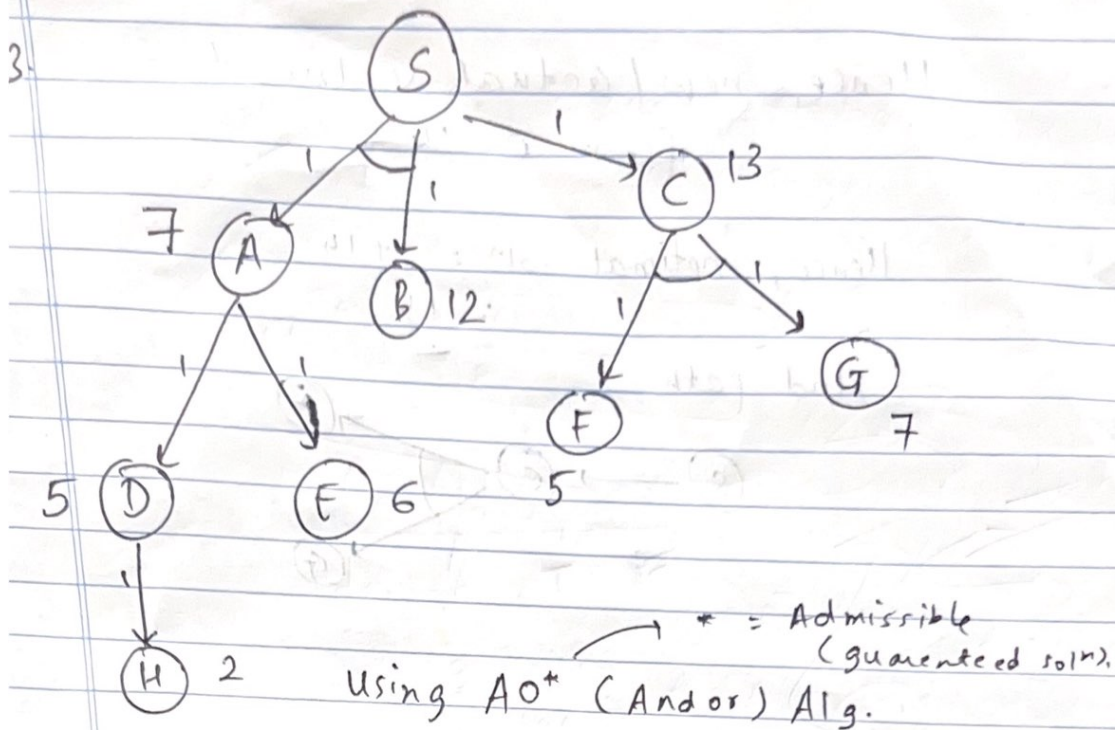 3.
S
1
1
1
C 13
7 A
B 12
1
1
1
1
G
7
F
5
5 D
E 6
1
H 2
* = Admissible
(guarenteed solⁿ).
Using AO* (And or) Alg.